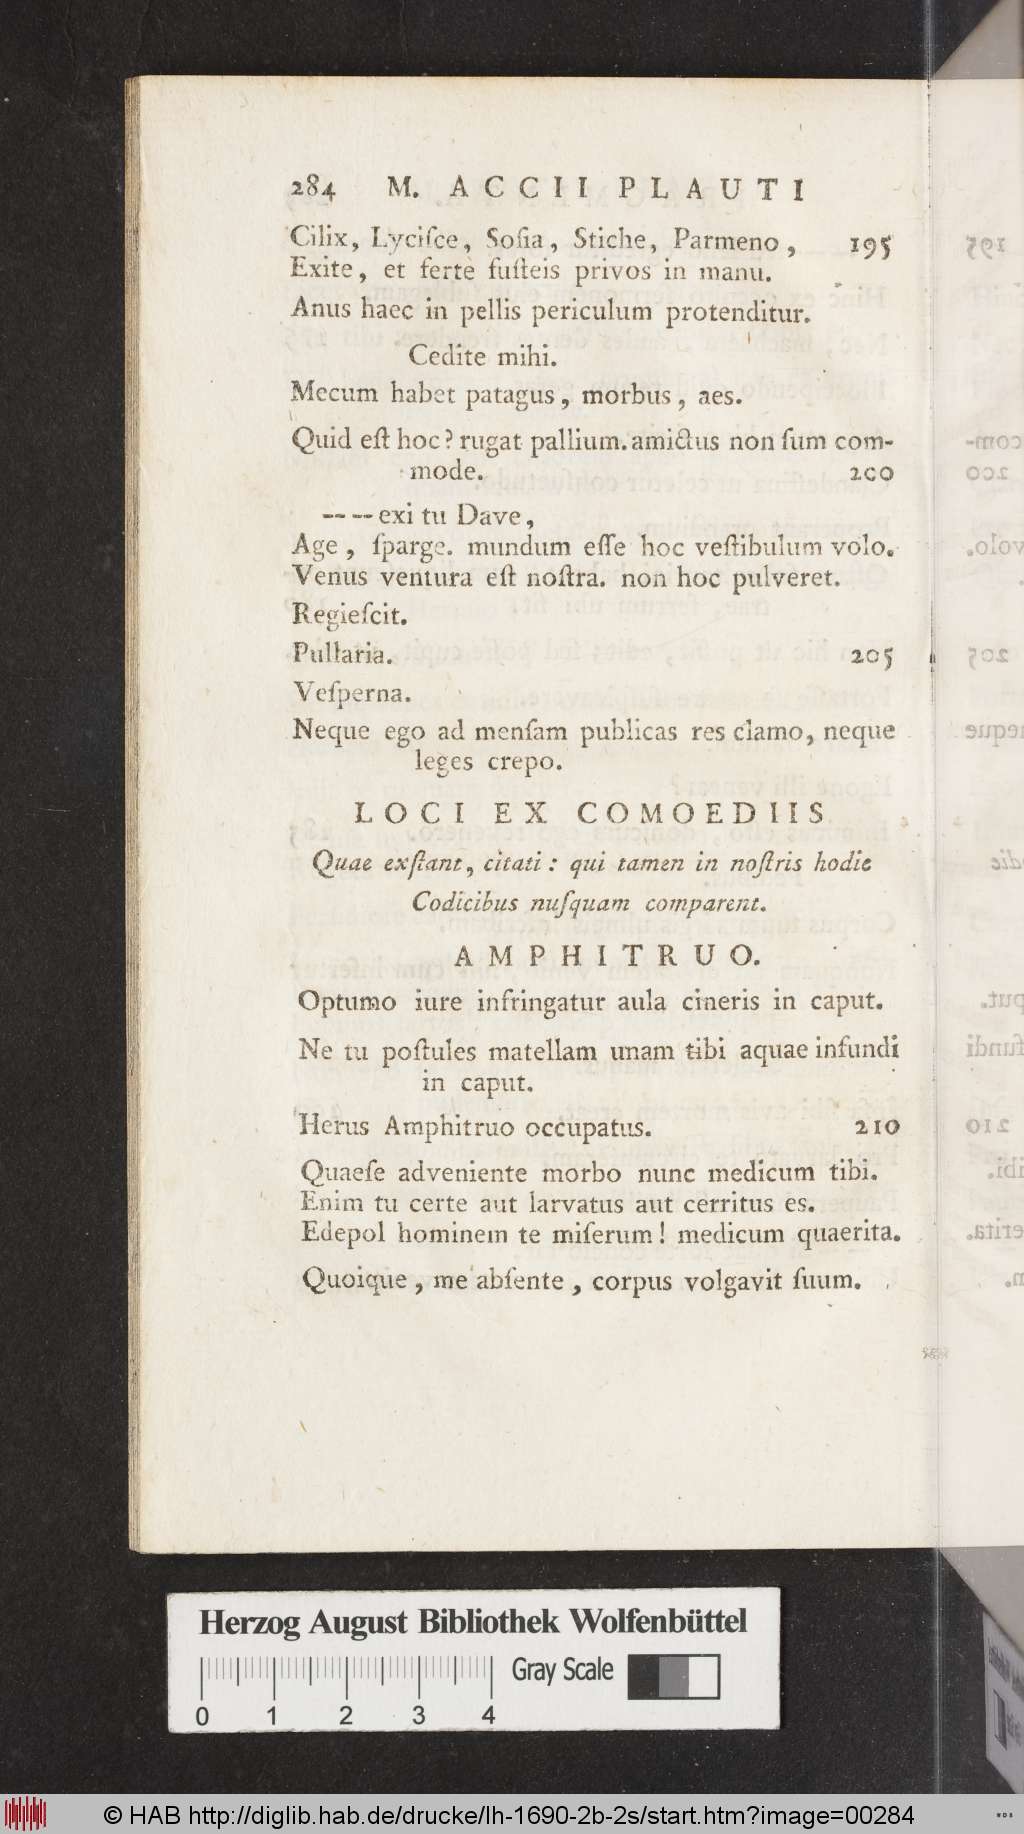 284 M. ACCII PLAUTI
Cilix, Lyciſce, Soſia, Stiche, Parmeno, 195
Exite, et ferte fuſteis privos in manu.
Anus haec in pellis periculum protenditur.
Cedite mihi.
Mecum habet patagus, morbus, aes.
Quid eſt hoc? rugat pallium. amictus non ſum com-
mode. 200
-- -- exi tu Dave,
Age, ſparge. mundum eſſe hoc veſtibulum volo.
Venus ventura eſt noſtra. non hoc pulveret.
Regieſcit.
Pullaria. 205
Veſperna.
Neque ego ad menſam publicas res clamo, neque
leges crepo.
LOCI EX COMOEDIIS
Quae exſtant, citati: qui tamen in noſtris hodie
Codicibus nuſquam comparent.
AMPHITRUO.
Optumo iure infringatur aula cineris in caput.
Ne tu poſtules matellam unam tibi aquae infundi
in caput.
Herus Amphitruo occupatus. 210
Quaeſe adveniente morbo nunc medicum tibi.
Enim tu certe aut larvatus aut cerritus es.
Edepol hominem te miſerum! medicum quaerita.
Quoique, me abſente, corpus volgavit ſuum.
Herzog August Bibliothek Wolfenbüttel
Gray Scale
0 1 2 3 4
© HAB http://diglib.hab.de/drucke/lh-1690-2b-2s/start.htm?image=00284